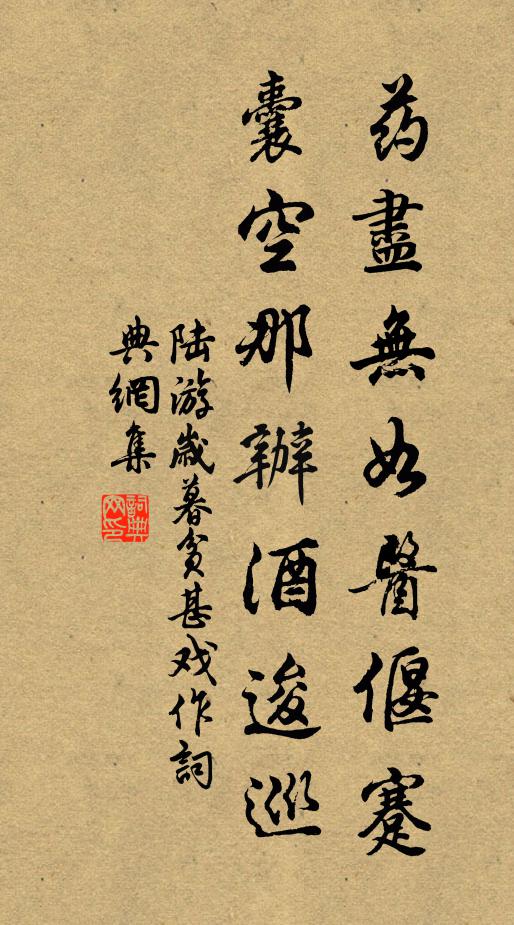 药盡無如醫偃蹇
囊空那辦酒逡巡
陆游歲暮貧甚戏作詞
典網集
詞典网印